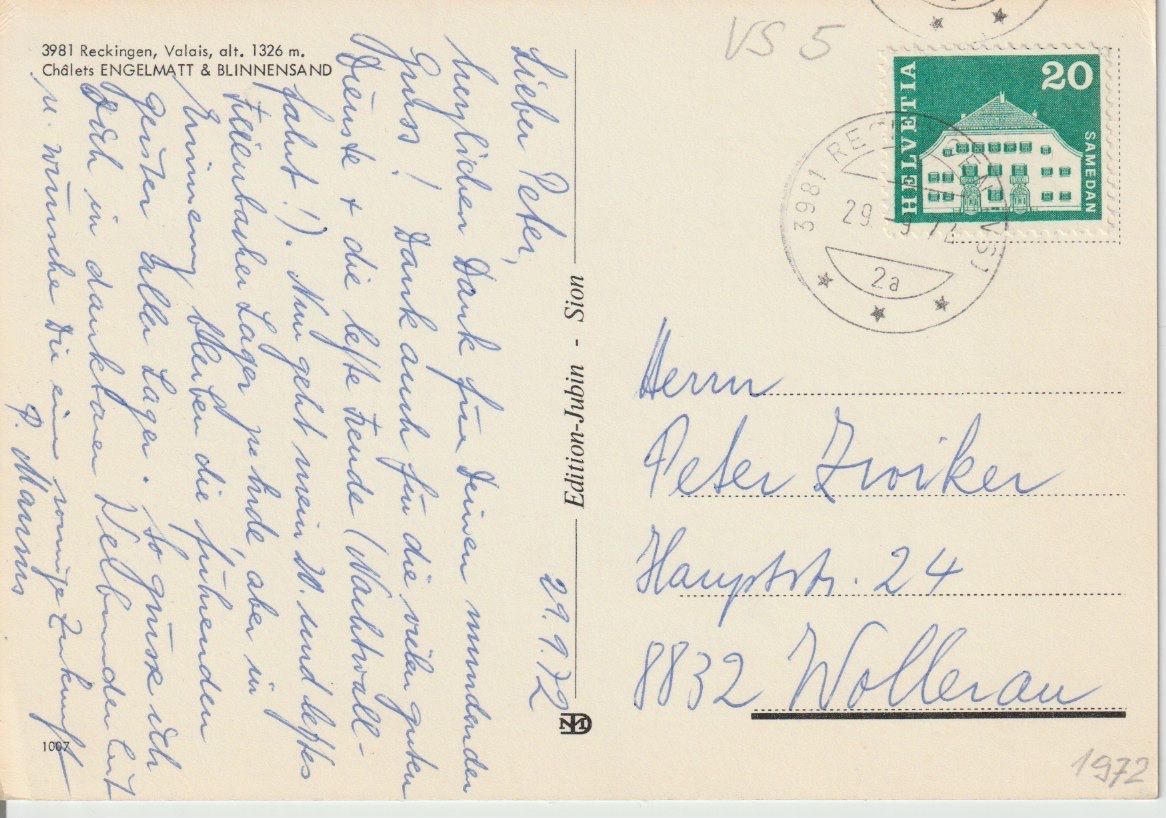 3981 Reckingen, Valais, alt. 1326 m.
Châlets ENGELMATT & BLINNENSAND
29.9.72
Lieber Peter,
herzlichen Dank für Deinen
Gruss! Dank auch für die vielen guten
Dienste + die letzte Freude (Nachtwall-
fahrt!). Nun geht mein 20. und letztes
Lager zu Ende, aber in
Erinnerung bleiben die führenden
Geister aller Lager. So grüsse ich
Dich in dankbarer Verbundenheit
u. wünsche Dir eine sonnige Zukunft
P.
1007
Edition-Jubin - Sion
VS 5
HELVETIA
20
SAMEDAN
3981 RECKINGEN (VS)
29. 9.72
2a
Herrn
Peter Zwiker
Hauptstr. 24
8832 Wollerau
1972